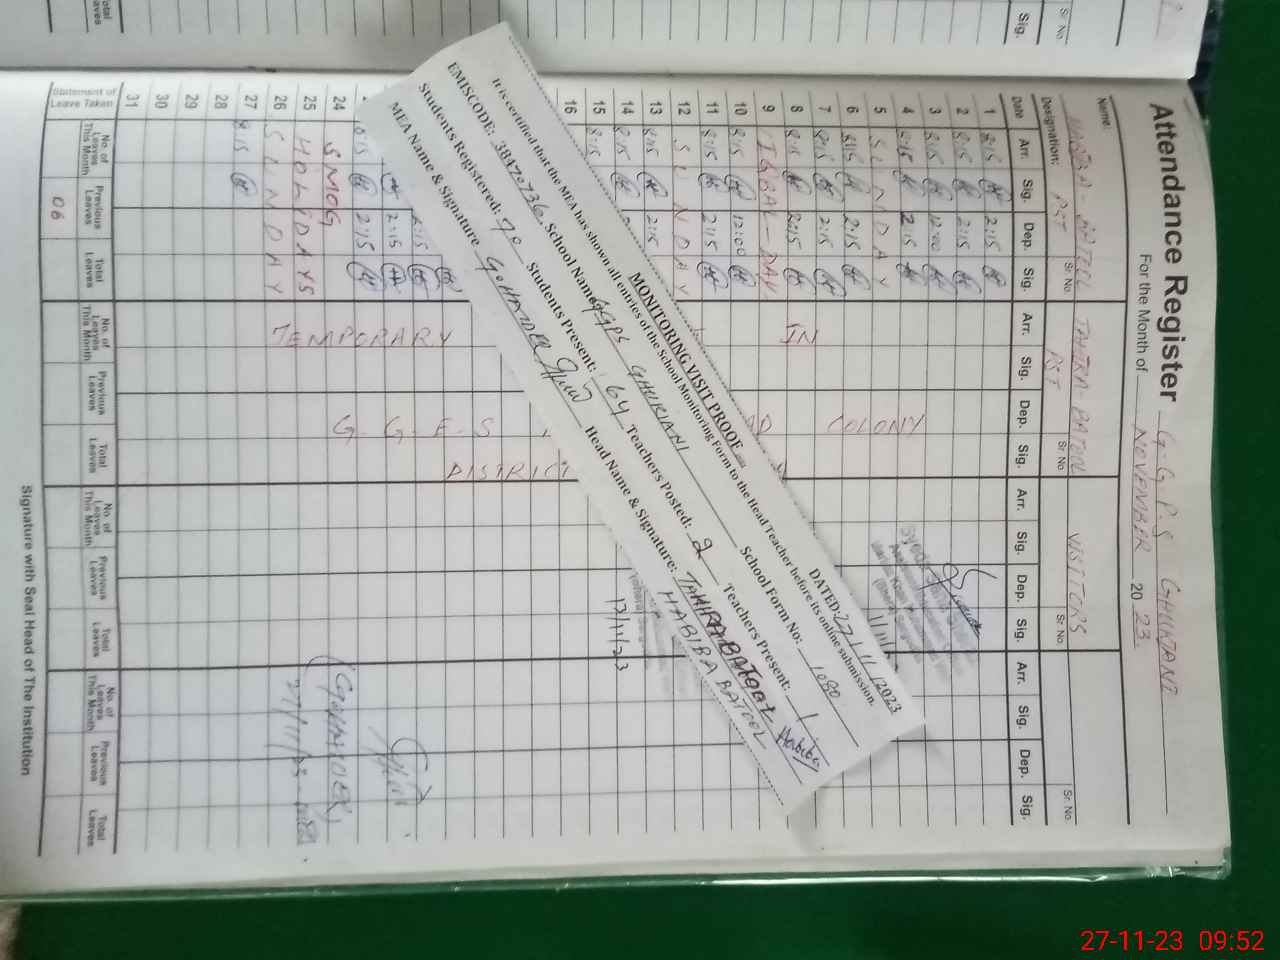 Attendance Register G.G.P.S GHUKIANI
For the Month of NOVEMBER 2023
Name: HABIBA-BATOOL TAHIRA-BATOOL VISITORS
Designation: PST Sr. No. PST Sr. No. Sr. No. Sr. No.
Date Arr. Sig. Dep. Sig. Arr. Sig. Dep. Sig. Arr. Sig. Dep. Sig. Arr. Sig. Dep. Sig.
1 8:15 2:15
2 8:15 2:15
3 8:15 12:00
4 8:15 2:15 COLONY
5 SUNDAY
6 8:15 2:15
7 8:15 2:15
8 8:15 2:15 IN
9 IQBAL-DAY
10 8:15 12:00
11 8:15 2:15
12 SUNDAY
13 8:15 2:15
14 8:15
15 8:15
16
DISTRICT
TEMPORARY
G.G.E.S
24 SMOG
25 HOLIDAYS
26 SUNDAY
27 8:15
28
29
30
31
Statement of Leave Taken
No. of Leaves This Month Previous Leaves Total Leaves No. of Leaves This Month Previous Leaves Total Leaves No. of Leaves This Month Previous Leaves Total Leaves No. of Leaves This Month Previous Leaves Total Leaves
06
Signature with Seal Head of The Institution
MONITORING VISIT PROOF
DATED: 27/11/2023
It is certified that the MEA has shown all entries of the School Monitoring Form to the Head Teacher before its online submission.
EMISCODE: 38420736 School Name: GGPS GHUKIANI School Form No: 1080
Students Registered: 70 Students Present: 64 Teachers Posted: 2 Teachers Present: 1
MEA Name & Signature Head Name & Signature: TAHIRA BATOOL
HABIBA BATOOL Habiba
27/11/23
27-11-23 09:52